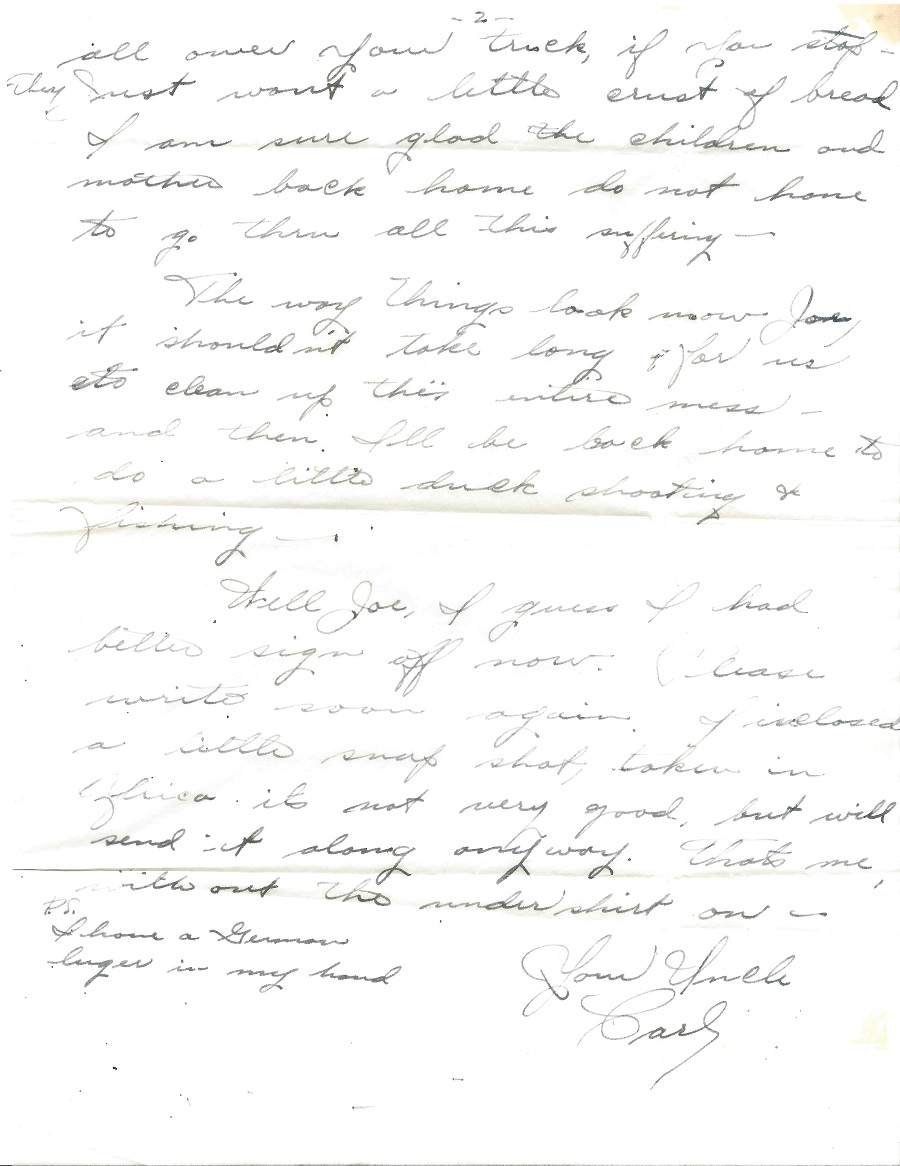 - 2 -
all over your truck, if you stop -
they just want a little crust of bread
I am sure glad the children and
mother back home do not have
to go thru all this suffering -
The way things look now Joe,
it shouldn't take long for us
to clean up this entire mess -
and then I'll be back home to
do a little duck shooting &
fishing - .
Well Joe, I guess I had
better sign off now. Please
write soon again. I inclosed
a little snap shot, taken in
Africa. its not very good, but will
send it along anyway. Thats me,
without the undershirt on -
P.S.
I have a German
luger in my hand
Your Uncle
Carl